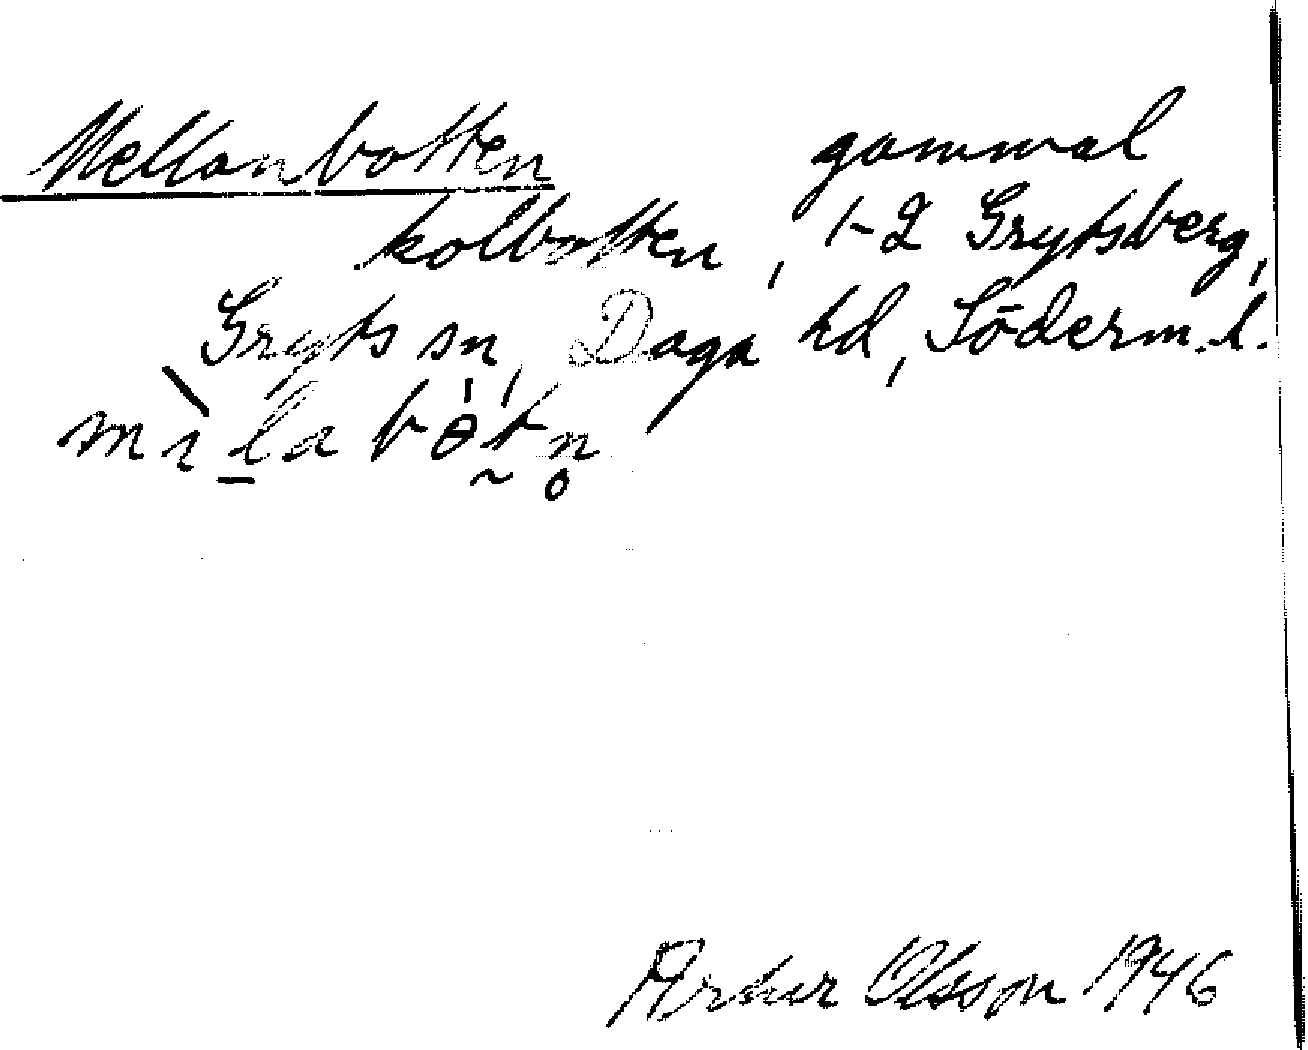 Mellanbotten gammal
kolbotten, 1-2 Grytsberg,
Gryts sn, Daga hd, Söderm. l.
mìla bòtn̥
Arthur Olsson 1946